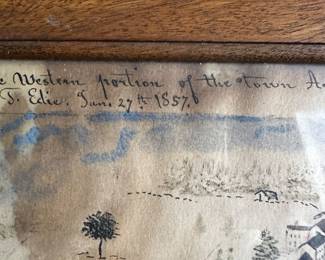 Western portion of the town
T. Edie. Jan. 27th 1857.